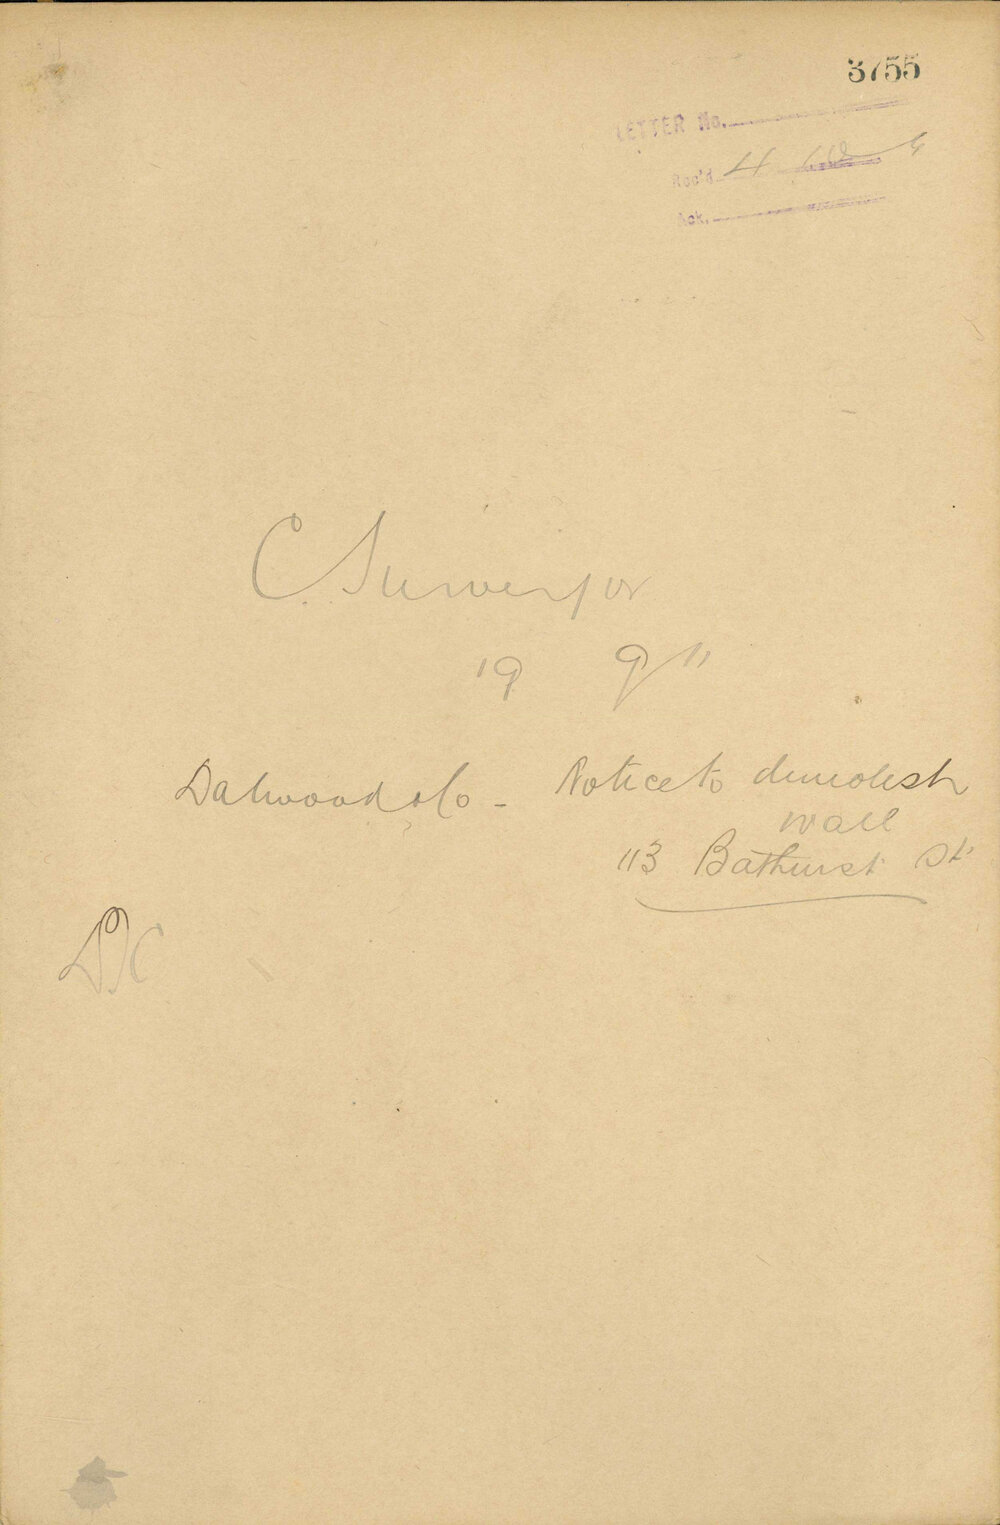 3755
LETTER No.
Rec'd 4
Ack.
C. Surveyor
19 9"
Dalwood & Co - Notice to demolish
wall
113 Bathurst St